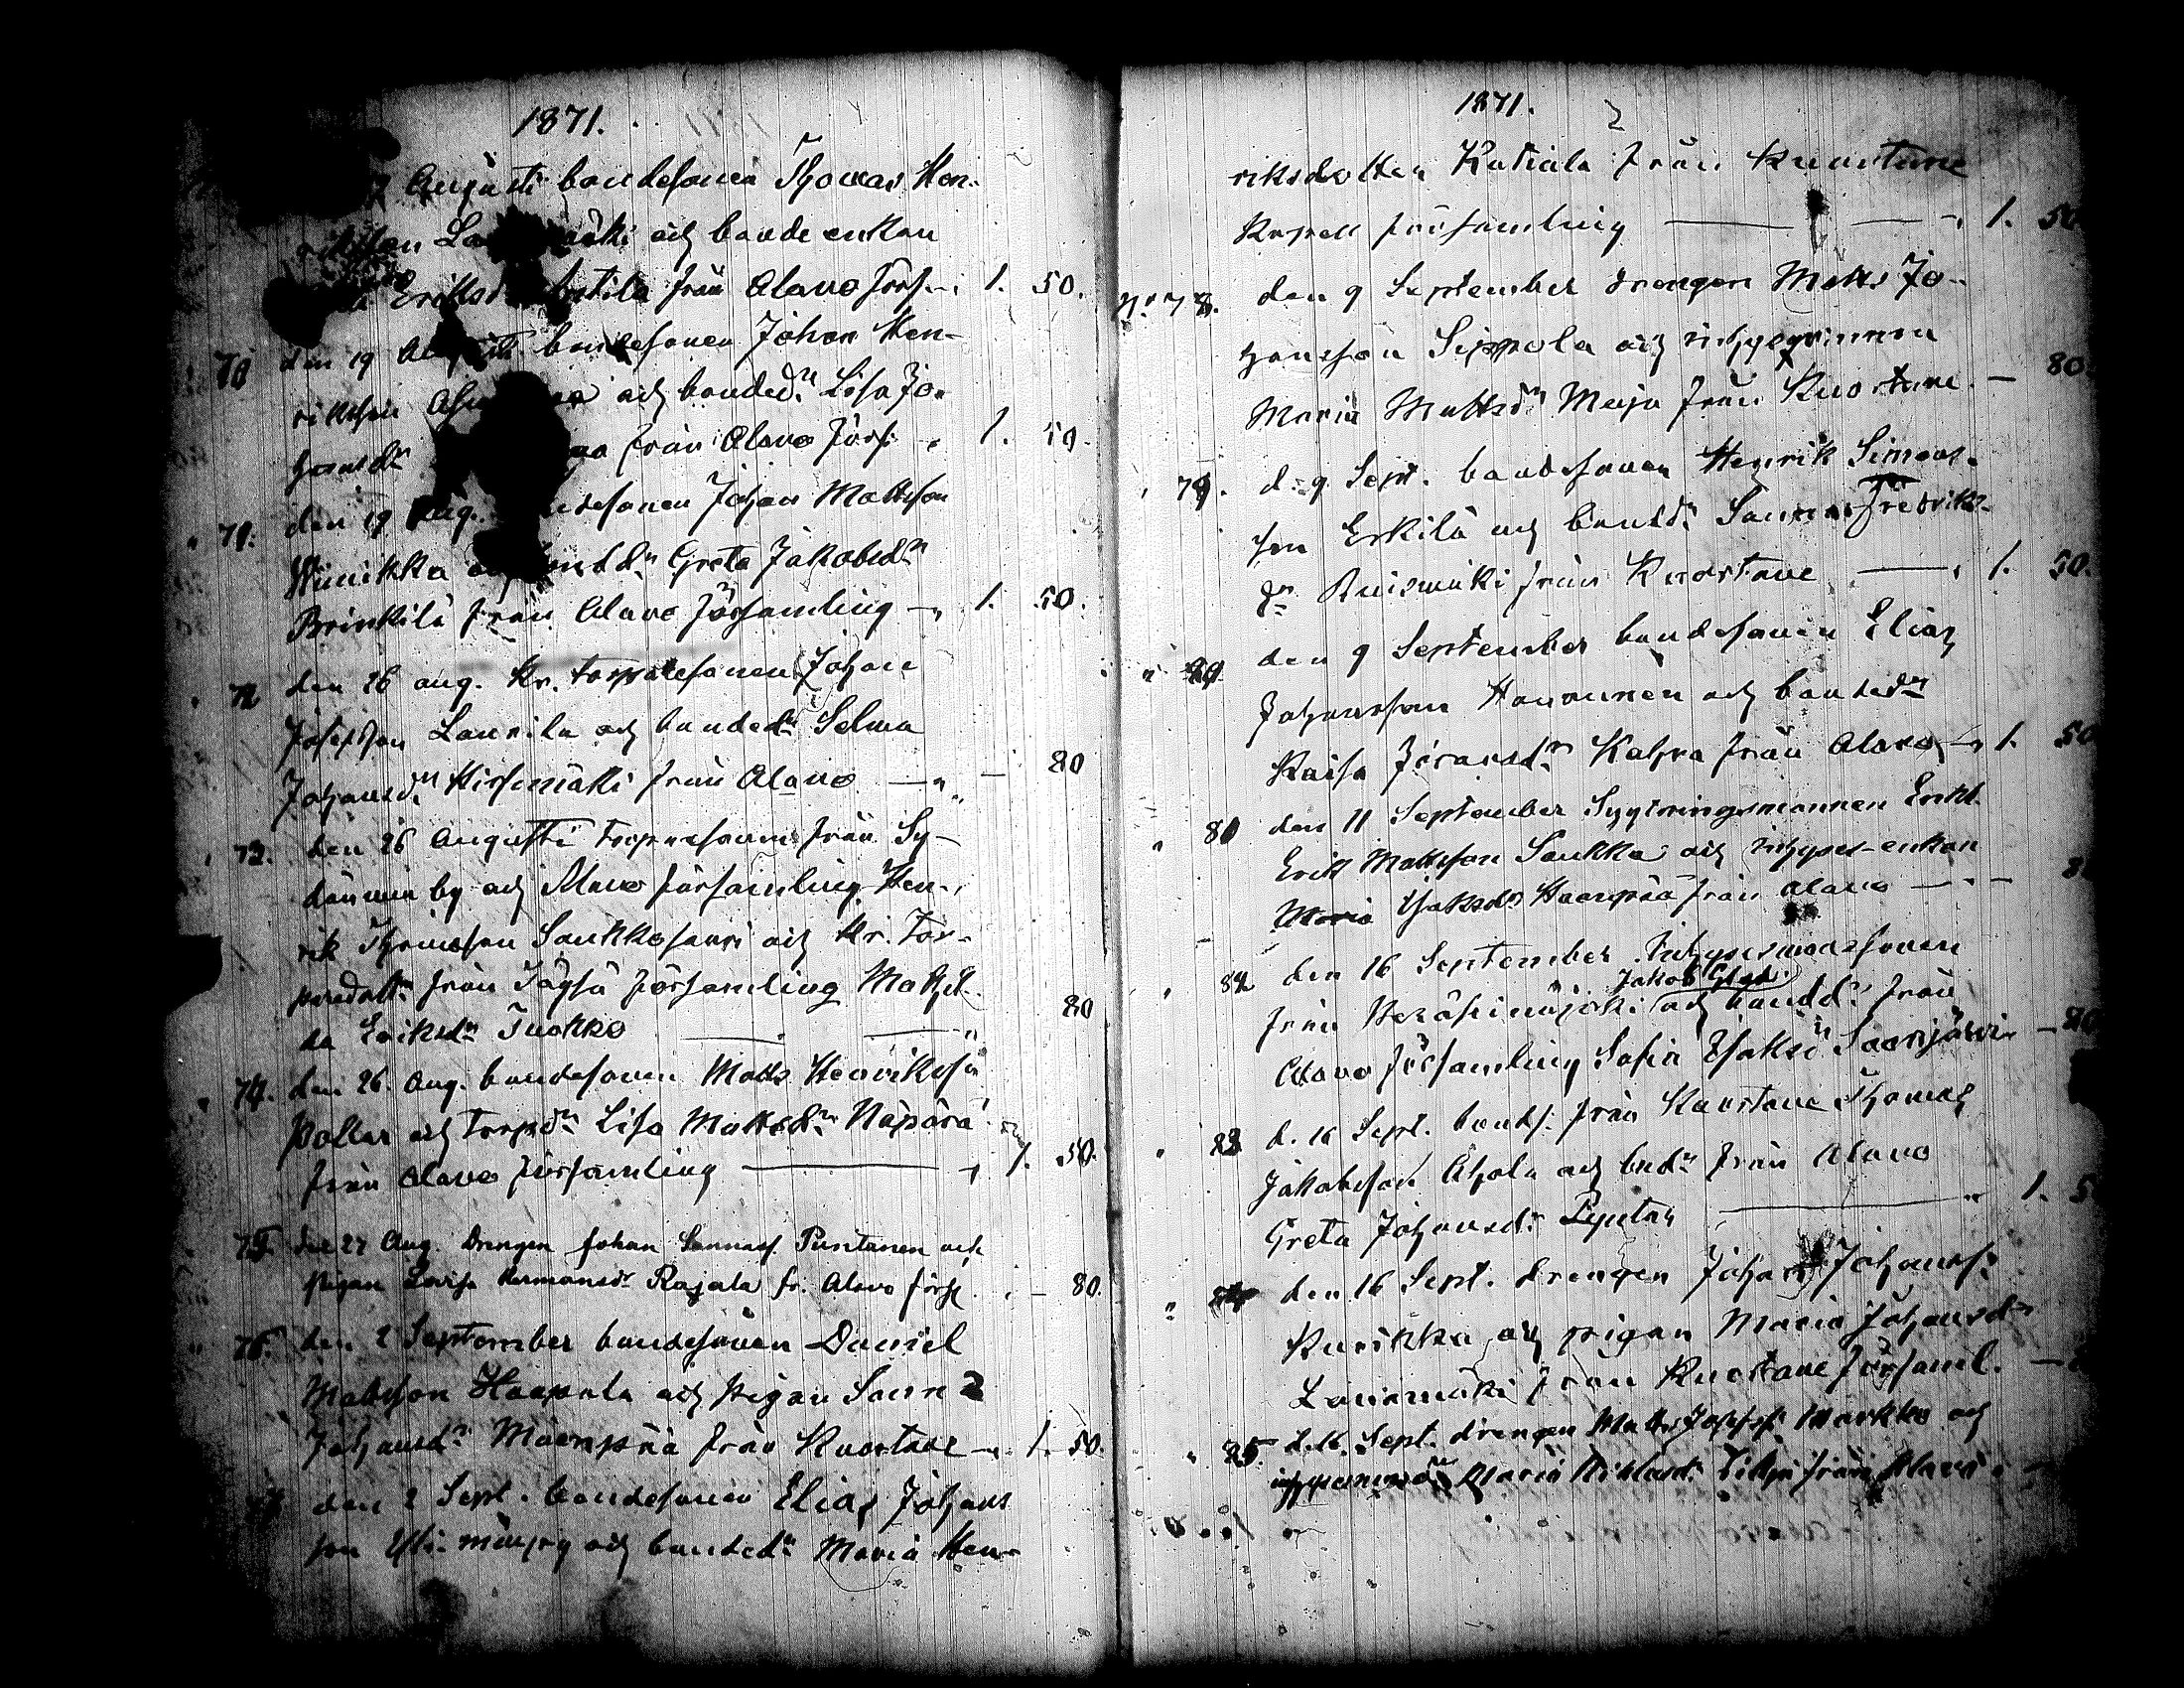 1871.
Augusti bondesonen Thomas Hen-
riksson och bonde enkan
Eriksdr från Alavo förs. 1. 50.
70 den 19 Augusti bondesonen Johan Hen-
riksson och bonded:r Lisa Jo-
hansdr från Alavo förs. 1. 50.
71. den 19 Aug. bondesonen Johan Mattsson
Winikka och bondd:r Greta Jakobsdr
Brinkilä från Alavo församling 1. 50.
72 den 26 aug. kr. torparesonen Johan
Josefsson Laurila och bonded:r Selma
Johansd:r Hirsimäki från Alavo — 80
73. den 26 Augusti torparesonen från Sy-
dänmin by och Alavo församling Hen-
rik Thomsson Saukkosaari och kr. Tor-
paredott:r från Töysä församling Mathil-
da Eriksdr Tuokko 80
74. den 26. Aug. bondesonen Matts Henriksson
Pollar och torpd:r Lisa Mattsd:r Näpärä
från Alavo församling 1. 50.
75. den 27 Aug. Drengen Johan Puntanen och
pigan Lovisa Hermansdr Rajala fr. Alavo förs. — 80.
76. den 2 September bondesonen Daniel
Mattsson Haapala och pigan Sanna
Johansd:r Mäenpää från Kuortane 1. 50.
77 den 2 Sept. bondesonen Elias Johans
son Yli-mäyry och bonded:r Maria Hen-
1871.
riksdotter Katiala från Kuortane
Kapell församling 1. 50.
N:o 78. den 9 September drengen Matts Jo-
hansson Seppola och inhysqvinnan
Maria Mattsd:r Meija från Kuortane — 80.
79. d. 9 Sept. bondesonen Henrik Simons-
son Erkilä och bondd:r Sanna Fredriks-
dr Ruismäki från Kuortane 1. 50.
den 9 September bondesonen Elias
Johansson Hauanen och bondedr
Kaisa Göransd:r Kahra från Alavo 1. 50
80 den 11 September Sytningsmannen Enkl.
Erik Mattsson Saukko och inhyses-enkan
Maria Isaksdr Haanpää från Alavo —
82 den 16 September Inhysesmanssonen
Jakob
från Peräseinäjoki och bondd:r från
Alavo församling Sofia Isaksdr Saarijärvi
83 d. 16 Sept. bonds. från Kuortane Thomas
Jakobsson Ahola och bnd:r från Alavo
Greta Johansd:r 1. 5
84 den 16 Sept. drengen Johan Johanss:n
Kurikka och pigan Maria Johansdr
Länsimäki från Kuortane församl.
85. d. 16. Sept. drengen Matts Josefss: Markko och
Maria Niklasd: från Alavo